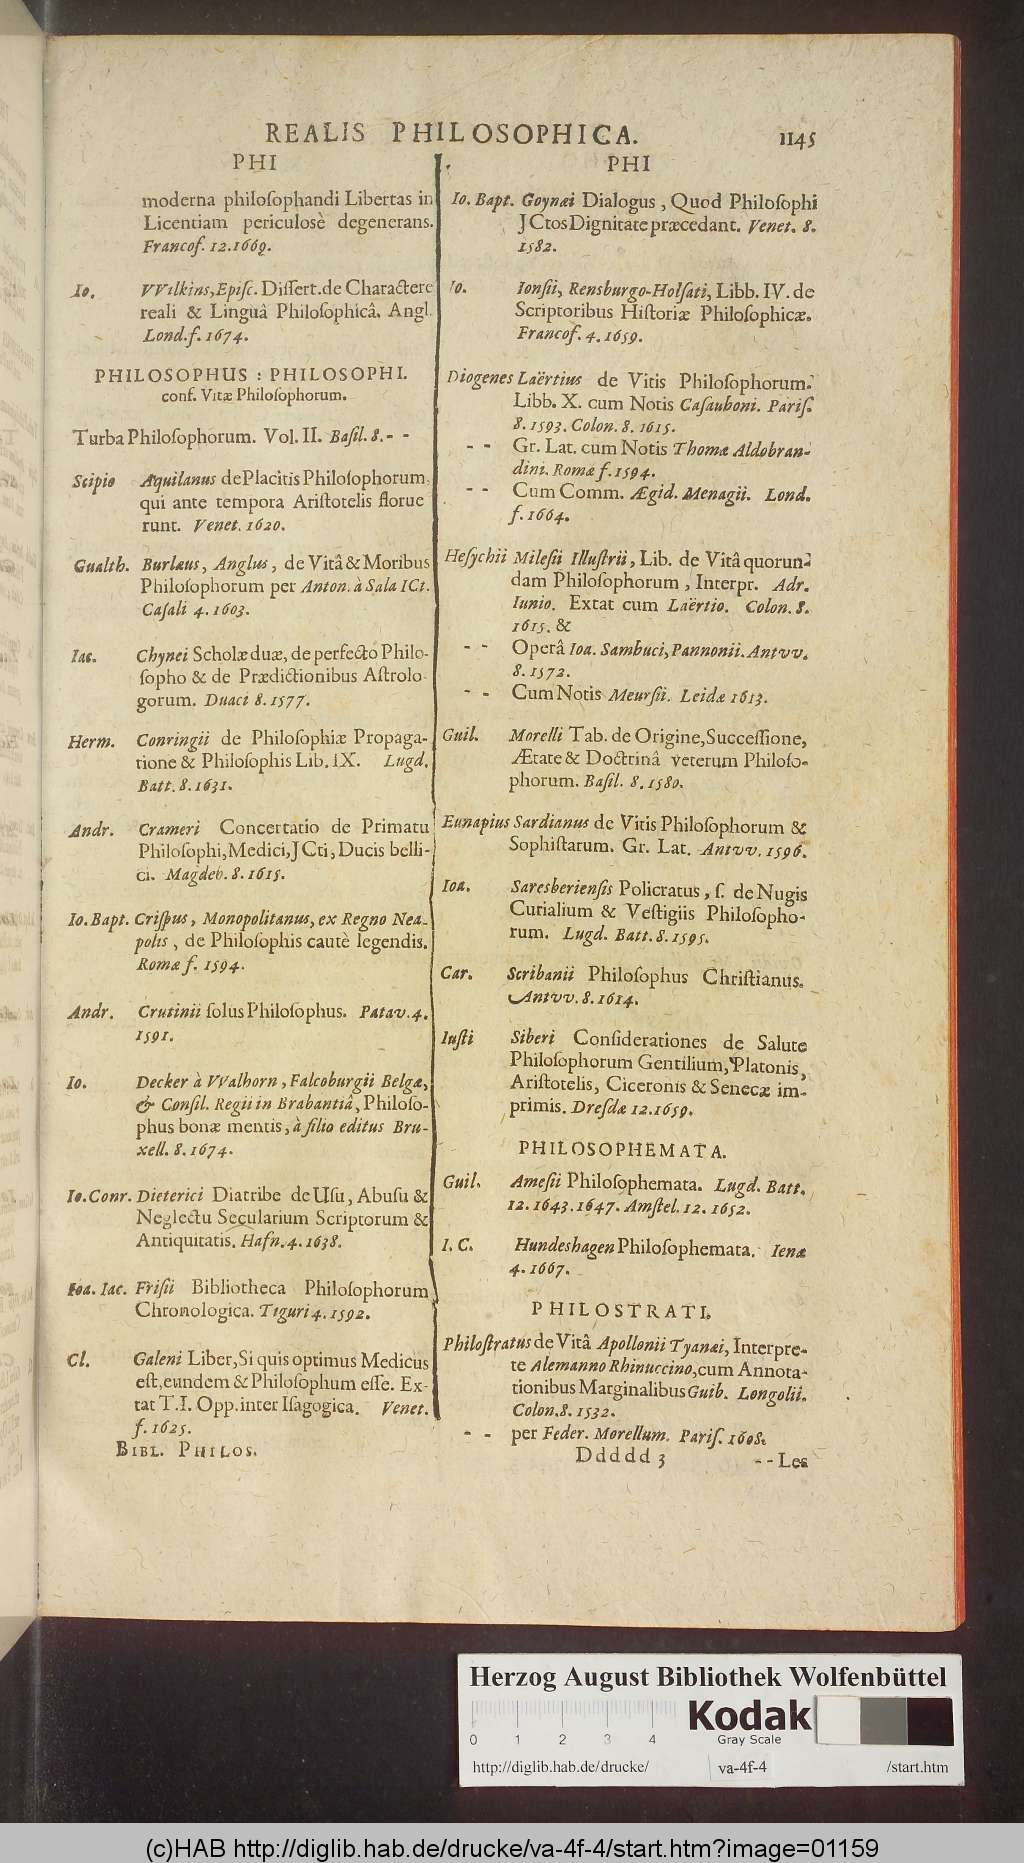 REALIS PHILOSOPHICA. 1145
PHI
moderna philosophandi Libertas in
Licentiam periculosè degenerans.
Francof. 12. 1669.
Io. VVilkins, Episc. Dissert. de Charactere
reali & Linguâ Philosophicâ. Angl.
Lond. f. 1674.
PHILOSOPHUS: PHILOSOPHI.
conf. Vitæ Philosophorum.
Turba Philosophorum. Vol. II. Basil. 8. - -
Scipio Aquilanus de Placitis Philosophorum,
qui ante tempora Aristotelis florue
runt. Venet. 1620.
Gualth. Burlæus, Anglus, de Vitâ & Moribus
Philosophorum per Anton. à Sala ICt.
Casali 4. 1603.
Iac. Chynei Scholæ duæ, de perfecto Philo-
sopho & de Prædictionibus Astrolo-
gorum. Duaci 8. 1577.
Herm. Conringii de Philosophiæ Propaga-
tione & Philosophis Lib. IX. Lugd.
Batt. 8. 1631.
Andr. Crameri Concertatio de Primatu
Philosophi, Medici, JCti, Ducis belli-
ci. Magdeb. 8. 1615.
Io. Bapt. Crispus, Monopolitanus, ex Regno Nea-
polis, de Philosophis cautè legendis.
Romæ f. 1594.
Andr. Crutinii solus Philosophus. Patav. 4.
1591.
Io. Decker à VValhorn, Falcoburgii Belgæ,
& Consil. Regii in Brabantiâ, Philoso-
phus bonæ mentis, à filio editus Bru-
xell. 8. 1674.
Io. Conr. Dieterici Diatribe de Usu, Abusu &
Neglectu Secularium Scriptorum &
Antiquitatis. Hafn. 4. 1638.
Ioa. Iac. Frisii Bibliotheca Philosophorum
Chronologica. Tiguri 4. 1592.
Cl. Galeni Liber, Si quis optimus Medicus
est, eundem & Philosophum esse. Ex-
tat T. I. Opp. inter Isagogica. Venet.
f. 1625.
BIBL. PHILOS.
PHI
Io. Bapt. Goynæi Dialogus, Quod Philosophi
JCtos Dignitate præcedant. Venet. 8.
1582.
Io. Ionsii, Rensburgo-Holsati, Libb. IV. de
Scriptoribus Historiæ Philosophicæ.
Francof. 4. 1659.
Diogenes Laërtius de Vitis Philosophorum.
Libb. X. cum Notis Casauboni. Paris.
8. 1593. Colon. 8. 1615.
- - Gr. Lat. cum Notis Thomæ Aldobran-
dini. Romæ f. 1594.
- - Cum Comm. Ægid. Menagii. Lond.
f. 1664.
Hesychii Milesii Illustrii, Lib. de Vitâ quorun-
dam Philosophorum, Interpr. Adr.
Iunio. Extat cum Laërtio. Colon. 8.
1615. &
- - Operâ Ioa. Sambuci, Pannonii. Antvv.
8. 1572.
- - Cum Notis Meursii. Leidæ 1613.
Guil. Morelli Tab. de Origine, Successione,
Ætate & Doctrinâ veterum Philoso-
phorum. Basil. 8. 1580.
Eunapius Sardianus de Vitis Philosophorum &
Sophistarum. Gr. Lat. Antvv. 1596.
Ioa. Saresberiensis Policratus, s. de Nugis
Curialium & Vestigiis Philosopho-
rum. Lugd. Batt. 8. 1595.
Car. Scribanii Philosophus Christianus.
Antvv. 8. 1614.
Iusti Siberi Considerationes de Salute
Philosophorum Gentilium, Platonis,
Aristotelis, Ciceronis & Senecæ im-
primis. Dresdæ 12. 1659.
PHILOSOPHEMATA.
Guil. Amesii Philosophemata. Lugd. Batt.
12. 1643. 1647. Amstel. 12. 1652.
I. C. Hundeshagen Philosophemata. Ienæ
4. 1667.
PHILOSTRATI.
Philostratus de Vitâ Apollonii Tyanæi, Interpre-
te Alemanno Rhinuccino, cum Annota-
tionibus Marginalibus Guib. Longolii.
Colon. 8. 1532.
- - per Feder. Morellum. Paris. 1608.
Ddddd 3 - - Les
Herzog August Bibliothek Wolfenbüttel
0 1 2 3 4
Kodak
Gray Scale
http://diglib.hab.de/drucke/ va-4f-4 /start.htm
(c)HAB http://diglib.hab.de/drucke/va-4f-4/start.htm?image=01159